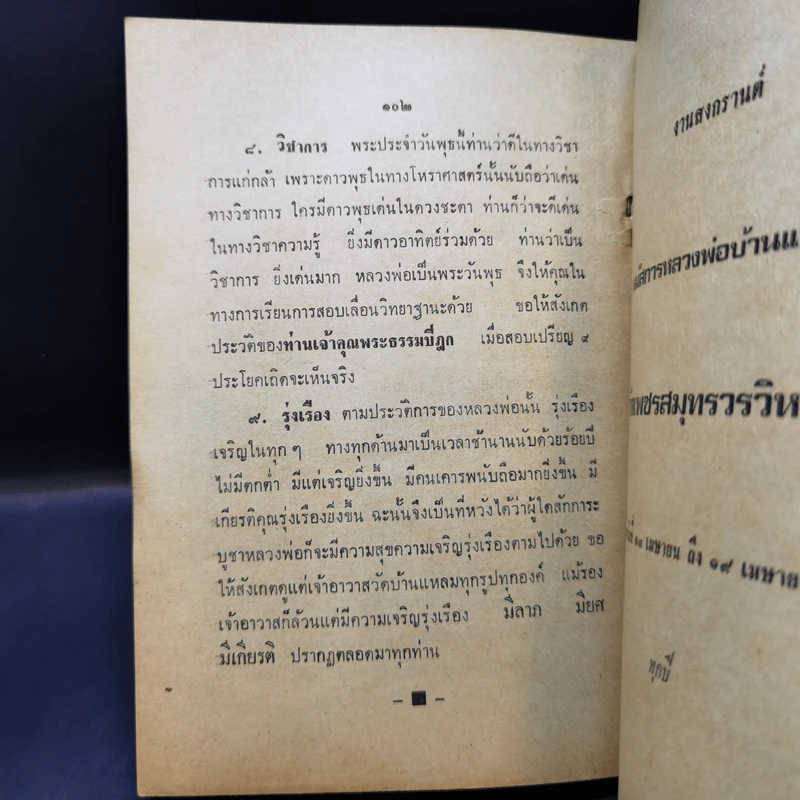 ๑๐๒
๘. วิชาการ พระประจำวันพุธนี้ท่านว่าดีในทางวิชา
การแก่กล้า เพราะดาวพุธในทางโหราศาสตร์นั้นนับถือว่าเด่น
ทางวิชาการ ใครมีดาวพุธเด่นในดวงชะตา ท่านก็ว่าจะดีเด่น
ในทางวิชาความรู้ ยิ่งมีดาวอาทิตย์ร่วมด้วย ท่านว่าเป็น
วิชาการ ยิ่งเด่นมาก หลวงพ่อเป็นพระวันพุธ จึงให้คุณใน
ทางการเรียนการสอบเลื่อนวิทยาฐานะด้วย ขอให้สังเกต
ประวัติของท่านเจ้าคุณพระธรรมปิฎก เมื่อสอบเปรียญ ๙
ประโยคเถิดจะเห็นจริง
๙. รุ่งเรือง ตามประวัติการของหลวงพ่อนั้น รุ่งเรือง
เจริญในทุก ๆ ทางทุกด้านมาเป็นเวลาช้านานนับด้วยร้อยปี
ไม่มีตกต่ำ มีแต่เจริญยิ่งขึ้น มีคนเคารพนับถือมากยิ่งขึ้น มี
เกียรติคุณรุ่งเรืองยิ่งขึ้น ฉะนั้นจึงเป็นที่หวังได้ว่าผู้ใดสักการะ
บูชาหลวงพ่อก็จะมีความสุขความเจริญรุ่งเรืองตามไปด้วย ขอ
ให้สังเกตดูแต่เจ้าอาวาสวัดบ้านแหลมทุกรูปทุกองค์ แม้รอง
เจ้าอาวาสก็ล้วนแต่มีความเจริญรุ่งเรือง มีลาภ มียศ
มีเกียรติ ปรากฏตลอดมาทุกท่าน
งานสงกรานต์
มัสการหลวงพ่อบ้านแ
เพชรสมุทรวรวิห
เมษายน ถึง ๑๙ เมษาย
ทุกปี